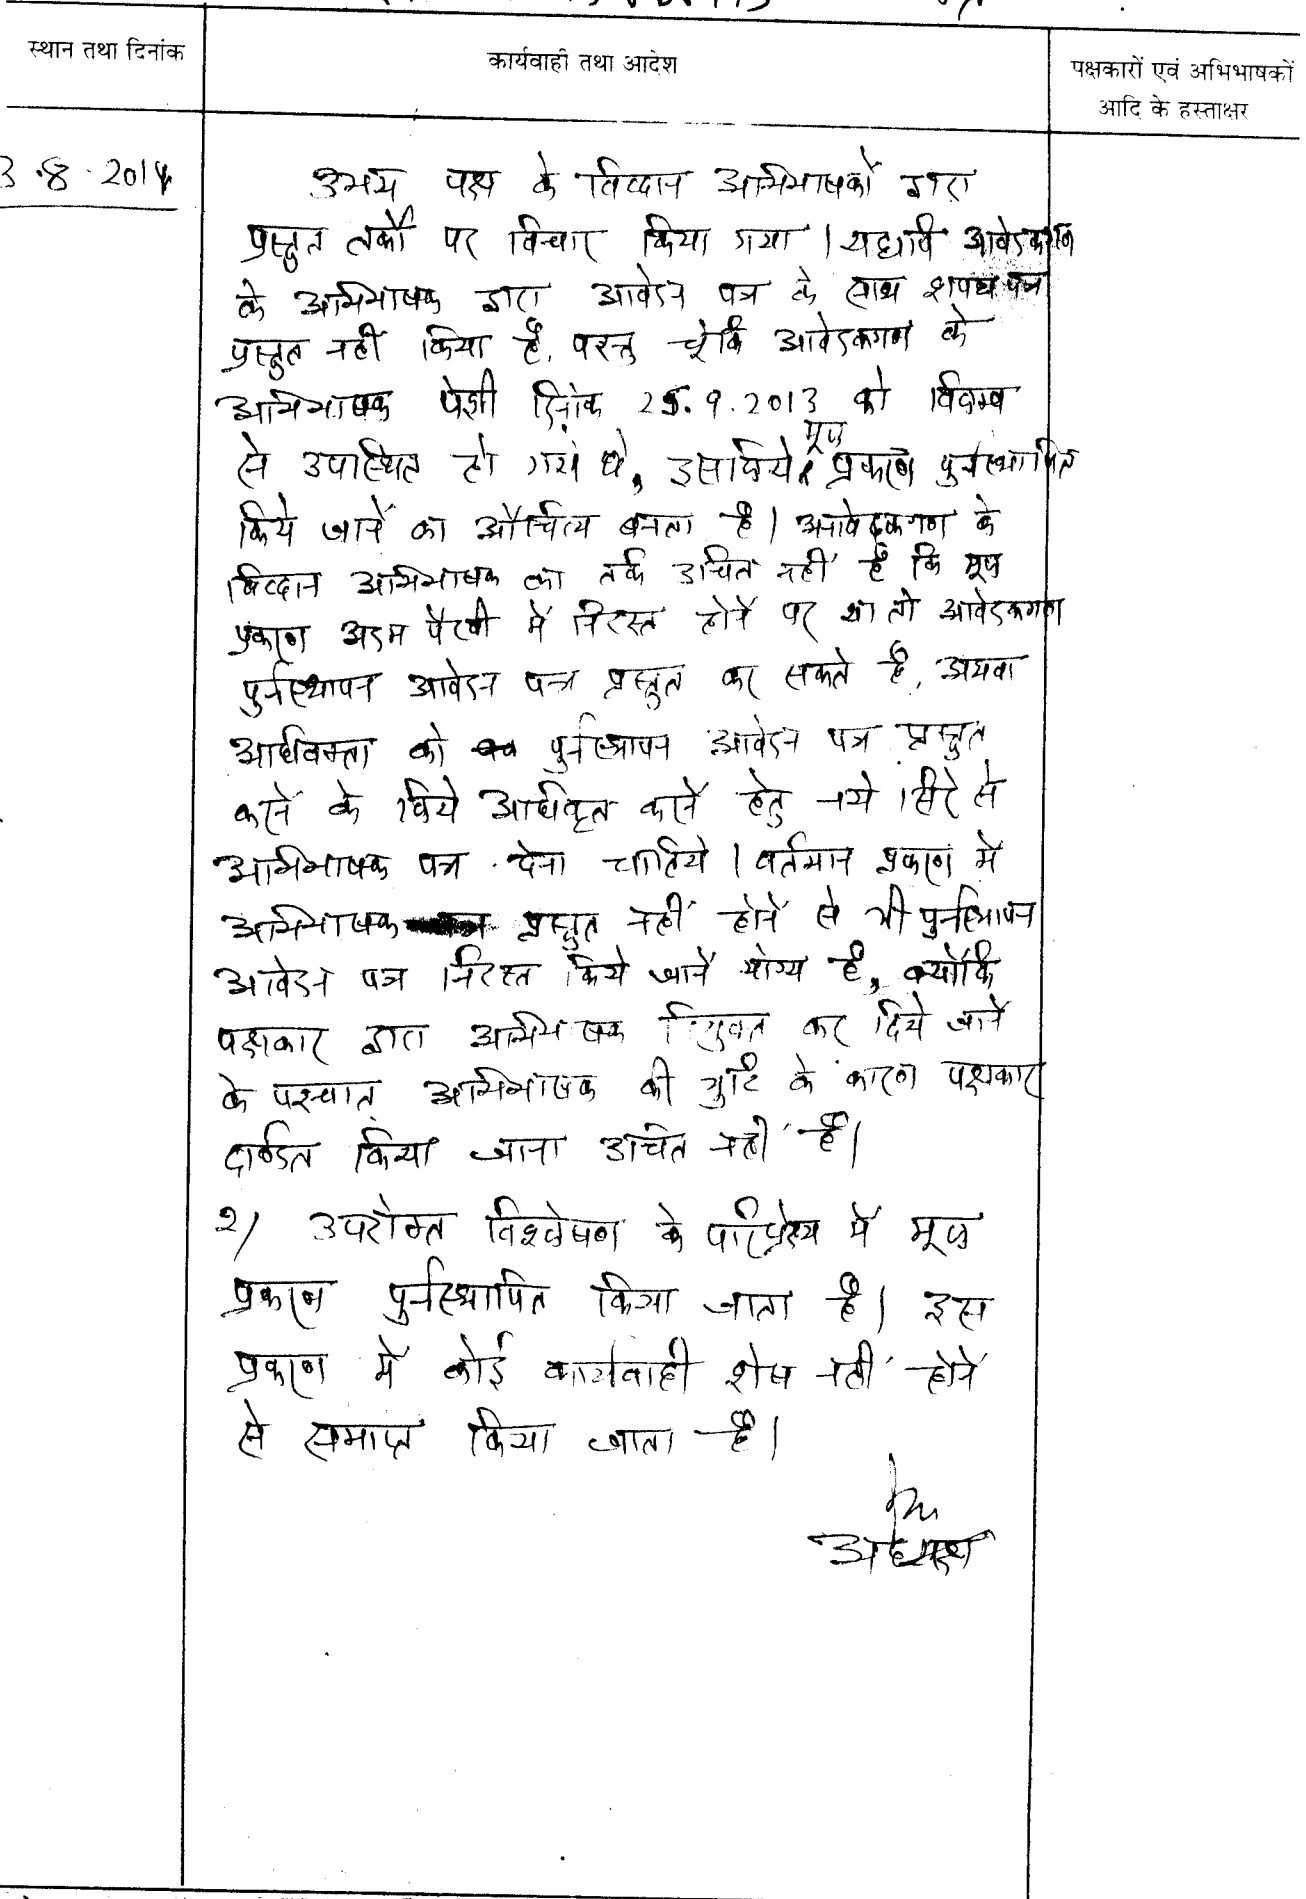 स्थान तथा दिनांक
कार्यवाही तथा आदेश
पक्षकारों एवं अभिभाषकों
आदि के हस्ताक्षर
3.8.2014
उभय पक्ष के विद्वान अभिभाषकों द्वारा
प्रस्तुत तर्कों पर विचार किया गया । यद्यपि आवेदकगण
के अभिभाषक द्वारा आवेदन पत्र के साथ शपथ पत्र
प्रस्तुत नहीं किया है, परन्तु चूंकि आवेदकगण के
अभिभाषक पेशी दिनांक 25.9.2013 को विलम्ब
से उपस्थित हो गये थे, इसलिये मूल प्रकरण पुर्नस्थापित
किये जाने का औचित्य बनता है । अनावेदकगण के
विद्वान अभिभाषक का तर्क उचित नहीं है कि मूल
प्रकरण अदम पैरवी में निरस्त होने पर या तो आवेदकगण
पुर्नस्थापन आवेदन पत्र प्रस्तुत कर सकते हैं, अथवा
अधिवक्ता को पुर्नस्थापन आवेदन पत्र प्रस्तुत
करने के लिये अधिकृत करने हेतु नये सिरे से
अभिभाषक पत्र देना चाहिये । वर्तमान प्रकरण में
अभिभाषक पत्र प्रस्तुत नहीं होने से भी पुर्नस्थापन
आवेदन पत्र निरस्त किये जाने योग्य है, क्योंकि
पक्षकार द्वारा अभिभाषक नियुक्त कर दिये जाने
के पश्चात् अभिभाषक की त्रुटि के कारण पक्षकार
दण्डित किया जाना उचित नहीं है ।
2/ उपरोक्त विश्लेषण के परिप्रेक्ष्य में मूल
प्रकरण पुर्नस्थापित किया जाता है । इस
प्रकरण में कोई कार्यवाही शेष नहीं होने
से समाप्त किया जाता है ।
अध्यक्ष